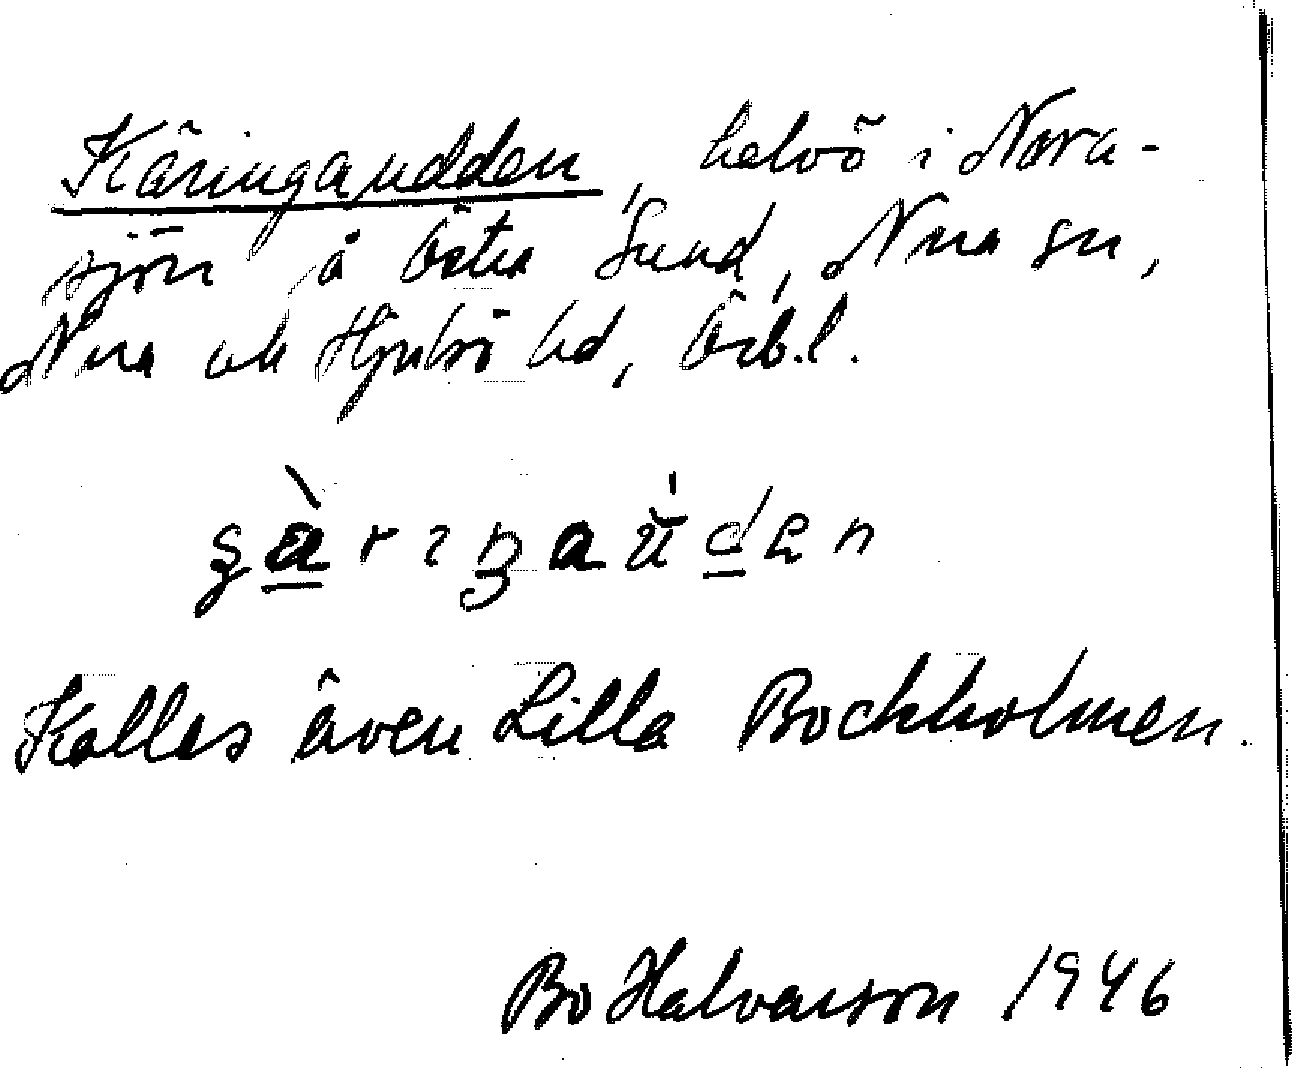 Käringaudden, halvö i Nora-
sjön å Östra Sund, Nora sn,
Nora och Hjulsjö hd, Örb.l.
Kallas även Lilla Bockholmen.
Bo Halvarson 1946